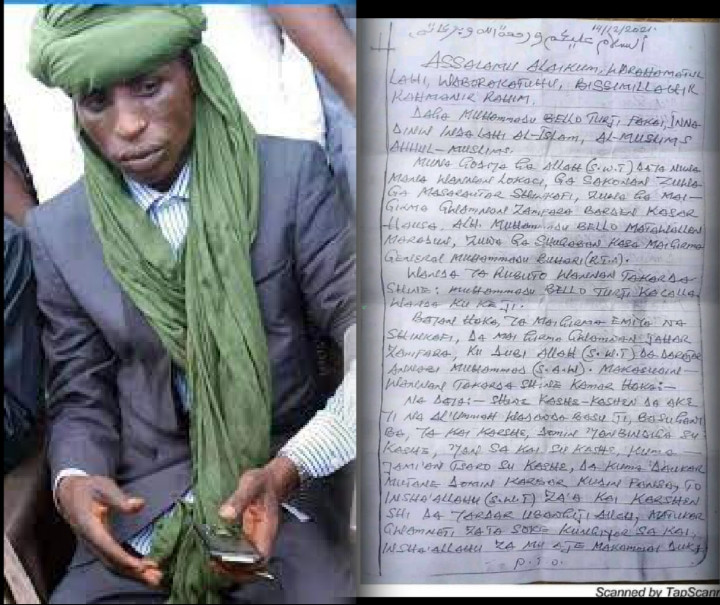 14/12/2021.
السلام عليكم ورحمة الله وبركاته.
ASSALAMU ALAIKUM, WARAHAMATUL
LAHI, WABARAKATUHU, BISSIMILLAHIR
RAHMANIR RAHIM.
DAGA MUHAMMADU BELLO TURJI, FAKAI, INNA
DININ INDALLAHI AL-ISLAM, AL-MUSLIMS
AHHUL-MUSLIMS.
MUNA GODIYA GA ALLAH (S.W.T) DAYA NUNA
MANA WANNAN LOKACI, GA SAKONAN ZUWA
GA MASARAUTAR SHINKAFI, ZUWA GA MAI-
GIRMA GWAMNAN ZAMFARA BARDEN KASAR
HAUSA, ALH. MUHAMMADU BELLO MATAWALLEN
MARADUN, ZUWA GA SHUGABAN KASA MAI GIRMA
GENERAL MUHAMMADU BUHARI (RTD).
WANDA YA RUBUTO WANNAN TAKARDA
SHINE: MUHAMMADU BELLO TURJI KACALLA
WANDA KU KE JI.
BAYAN HAKA, YA MAI GIRMA EMIYA NA
SHINKAFI, DA MAI GIRMA GWAMNAN JAHAR
ZAMFARA, KU DUBI ALLAH (S.W.T) DA DARAJAR
ANNABI MUHAMMAD (S.A.W). MAKASUDIN
WANNAN TAKARDA SHINE KAMAR HAKA:-
NA DAYA:- KASHE-KASHEN DA AKE
YI NA AL'UMMAH WADANDA BASU JI, BASU GANI
BA, YA KAI KARSHE, DOMIN 'YAN BINDIGA SU
KASHE, 'YAN SA KAI SU KASHE, KUMA
JAMI'AN TSARO SU KASHE, DA KUMA DAUKAR
MUTANE DOMIN KARBAR KUDIN FANSA, TO
INSHA'ALLAHU (S.W.T) ZA'A KAI KARSHEN
SHI DA YARDAR UBANGIJI ALLAH, MATUKAR
GWAMNATI ZATA SOKE KUNGIYAR SA KAI,
INSHA'ALLAHU ZA MU AJE MAKAMMAI DUKA
p.t.o.
Scanned by TapScann